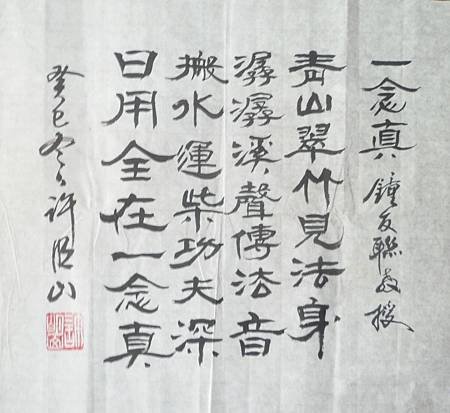 一念真 鐘友聯教授
青山翠竹見法身
潺潺溪聲傳法音
搬水運柴功夫深
日用全在一念真
癸巳冬 許 山